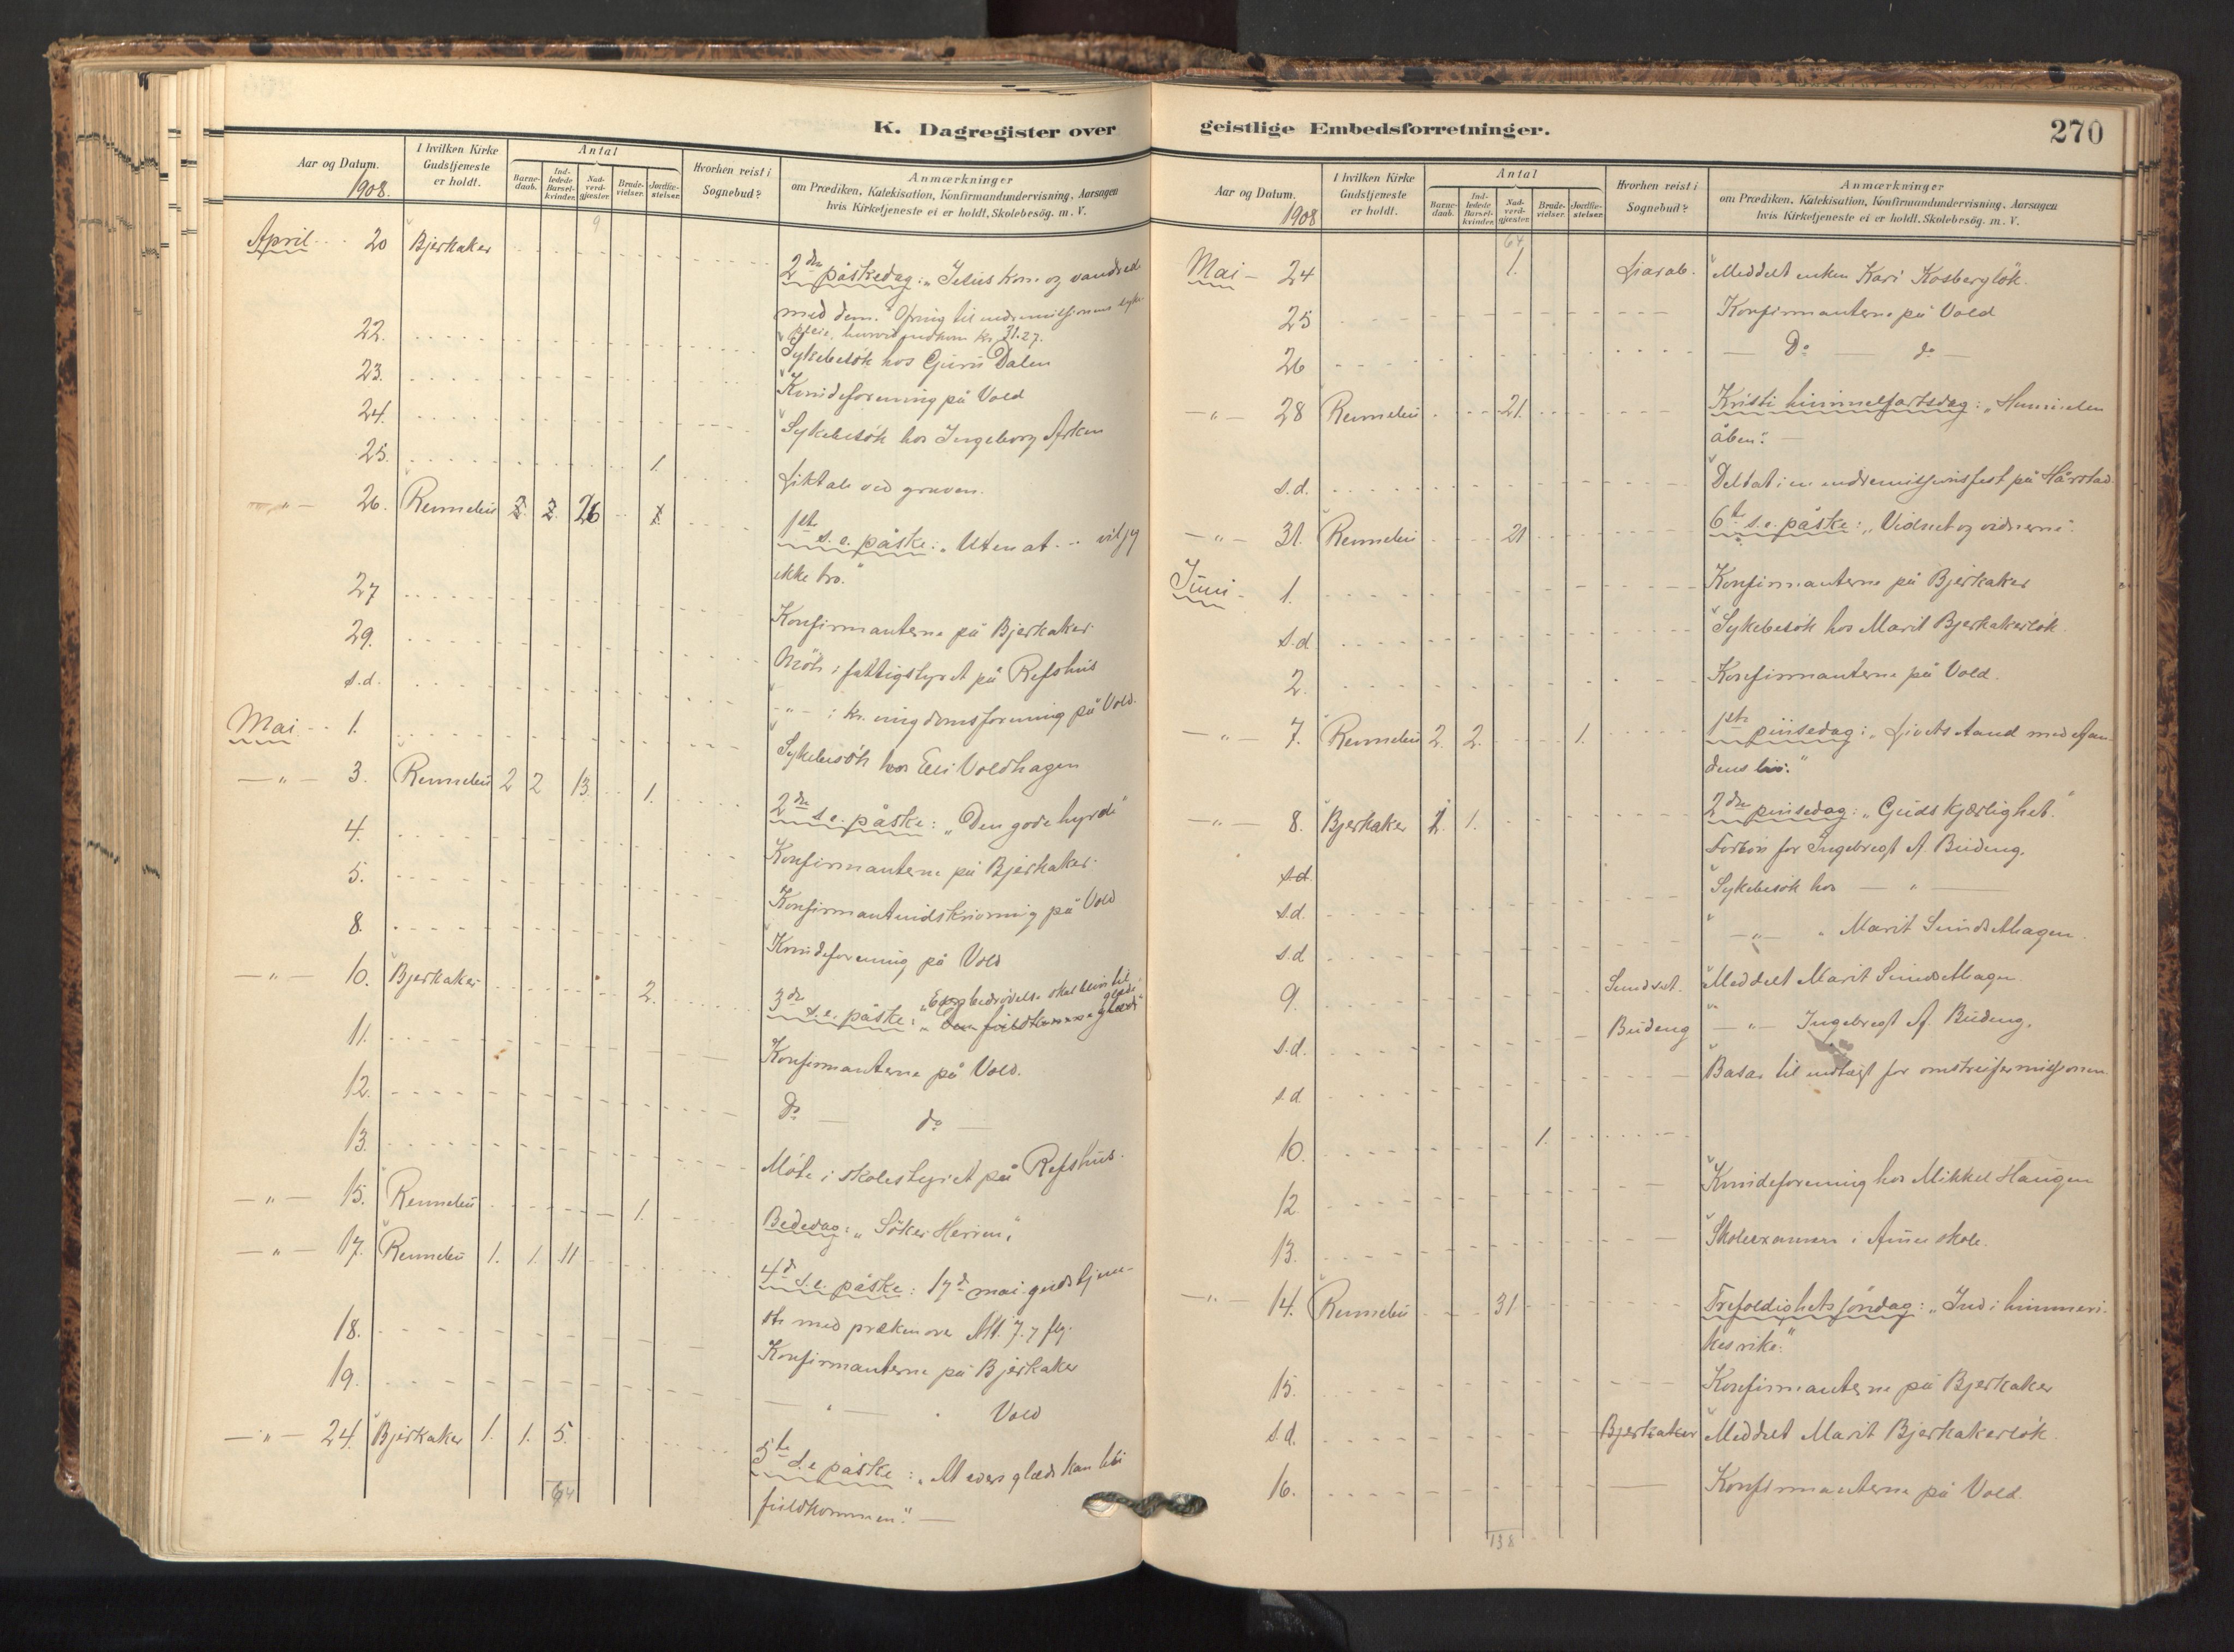 K. Dagregister over
Aar og Datum. 1908.
I hvilken Kirke Gudstjeneste er holdt.
Antal
Barne-daab.
Ind-ledede Barsel-kvinder.
Nad-verd-gjæster.
Brude-vielser.
Jordfæ-stelser.
Hvorhen reist i Sognebud?
Anmærkninger
om Prædiken, Katekisation, Konfirmandundervisning, Aarsagen
hvis Kirketjeneste ei er holdt, Skolebesög. m. V.
9
April 20 Bjerkaker 2den påskedag: "Jesus kom og vandred
med dem." Ofring til indremissionens syke-
pleie, hvorved indkom kr. 31.27.
22. Sykebesök hos Guru Dalen
23. Kvindeforening på Vold
24. Sykebesök hos Ingeborg Asken
25. 1. Liktale ved graven.
-"- 26. Rennebu 2. 2. 26 1. 1ste s. e. påske: "Uten at ... vil jeg
ikke tro."
27 Konfirmanterne på Bjerkaker.
29. Möte i fattigstyret på Refshus
s.d. -"- i kr. ungdomsforening på Vold.
Mai 1. Sykebesök hos Eli Voldhagen
-"- 3. Rennebu 2 2 13. 1. 2den s. e. påske: "Den gode hyrde"
4. Konfirmanterne på Bjerkaker.
5. Konfirmantindskrivning på Vold
8. Kvindeforening på Vold
-"- 10. Bjerkaker 2. 3die s. e. påske: "Eders bedrövelse skal blive til glæde"
11. Konfirmanterne på Vold.
12. Do — do —
13. Möte i skolestyret på Refshus.
-"- 15. Rennebu 1. Bededag: "Söker Herren."
-"- 17. Rennebu 1. 1. 11 4de s. e. påske: 17de mai-gudstjene-
ste med præken over Mt. 7.7 flg.
18. Konfirmanterne på Bjerkaker
19. — " — " Vold
-"- 24. Bjerkaker 1. 1. 5. 5te s. e. påske: "At eders glæde kan bli
fuldkommen." —
64
geistlige Embedsforretninger.
270
Aar og Datum. 1908
I hvilken Kirke Gudstjeneste er holdt.
Antal
Barne-daab.
Ind-ledede Barsel-kvinder.
Nad-verd-gjæster.
Brude-vielser.
Jordfæ-stelser.
Hvorhen reist i Sognebud?
Anmærkninger
om Prædiken, Katekisation, Konfirmandundervisning, Aarsagen
hvis Kirketjeneste ei er holdt. Skolebesög. m. V.
64
Mai - 24 1. Meddelt enken Kari Kosberglök.
25 Konfirmanterne på Vold
26 — Do — do —
-"- 28 Rennebu 21. Kristi himmelfartsdag: "Himmelen
åben." —
s.d. Deltat i en indremissionsfest på Hårstad.
-"- 31. Rennebu 21 6te s. e. påske: "Vidnet og vidnerne".
Juni - 1. Konfirmanterne på Bjerkaker
s.d Sykebesök hos Marit Bjerkakerlök.
2. Konfirmanterne på Vold.
-"- 7. Rennebu 2. 2. 1. 1ste pinsedag: "Livets Aand med Aan-
dens liv."
-"- 8. Bjerkaker 1. 1. 2den pinsedag: "Guds kjærlighet."
Forbön for Ingebregt A. Budeng.
s.d. Sykebesök hos — " —
s.d. -"- " Marit Sundsethagen.
s.d
9. Sundset. Meddelt Marit Sundsethagen
s.d. Budeng -"- Ingebregt A. Budeng.
s.d. Basar til indtægt for omstreifermissionen
10. 1.
12. Kvindeforening hos Mikkel Haugen
13. Skoleexamen i Aune skole.
-"- 14. Rennebu 31 Trefoldighetssöndag: "Ind i himmeri-
kes rike."
15. Konfirmanterne på Bjerkaker
s.d. Bjerkaker Meddelt Marit Bjerkakerlök
16. Konfirmanterne på Vold.
138